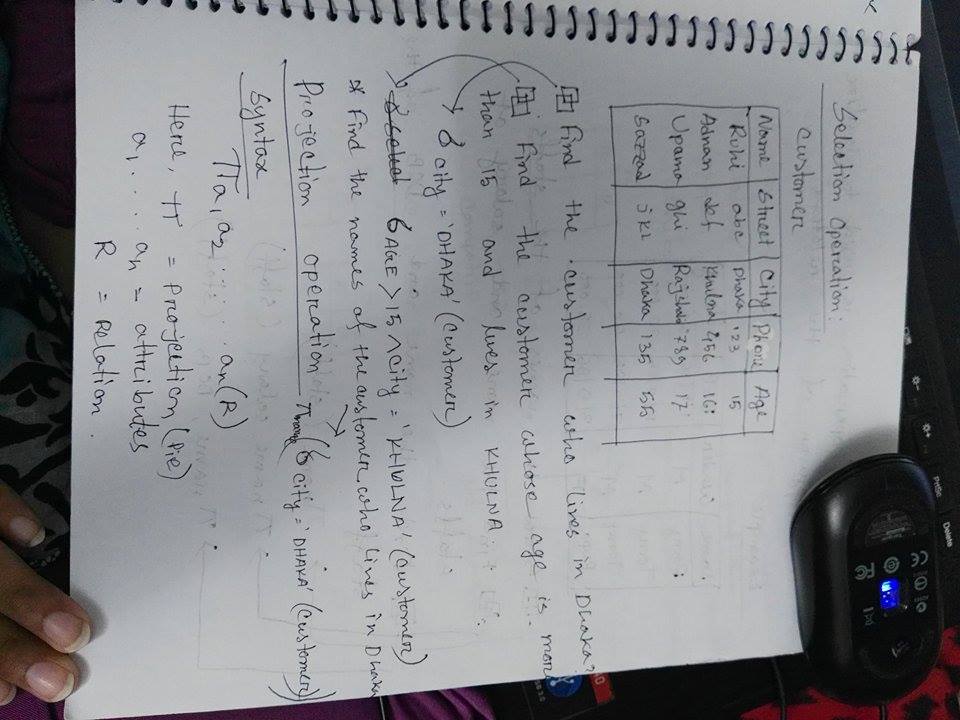 Selection operation:
Customer
Name Street City Phone Age
Ruhi abc Dhaka 123 15
Adnan def Khulna 456 16
Upama ghi Rajshahi 789 17
Sazzad jkl Dhaka 135 55
Find the customer who lives in Dhaka?
Find the customer whose age is more
than 15 and lives in KHULNA.
б city = 'DHAKA' (customer)
б AGE > 15 ∧ city = 'KHULNA' (customer)
* Find the names of the customer who lives in Dhaka
Projection operation πname (б city = 'DHAKA' (customer))
Syntax
πa1, a2 ..... an (R)
Here, π = Projection (Pie)
a1 . . . . an = attributes
R = Relation.
PrtSc
Delete